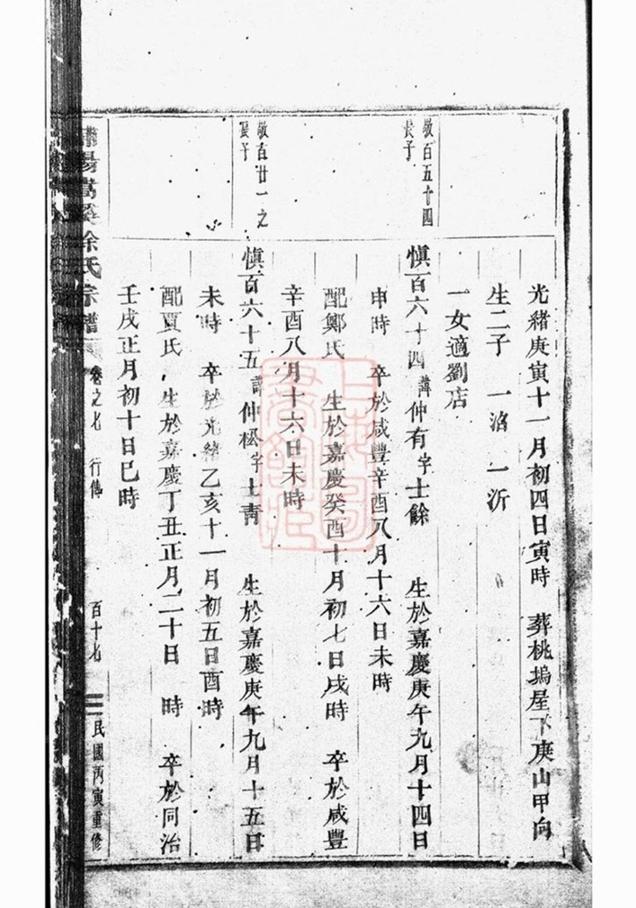 光緒庚寅十一月初四日寅時 葬桃塢屋下庚山甲向
生二子 一浛 一沂
一女適劉店
敬百五十四
長子
慎百六十四諱仲有字士餘 生於嘉慶庚午九月十四日
申時 卒於咸豐辛酉八月十六日未時
配鄭氏 生於嘉慶癸酉十月初七日戌時 卒於咸豐
辛酉八月十六日未時
敬百廿一之
長子
慎百六十五諱仲松字士青 生於嘉慶庚午九月十五日
未時 卒於光緒乙亥十一月初五日酉時
配賈氏 生於嘉慶丁丑正月二十日 時 卒於同治
壬戌正月初十日巳時
嵩溪徐氏宗譜 卷之七 行傳 百十七 民國丙寅重修